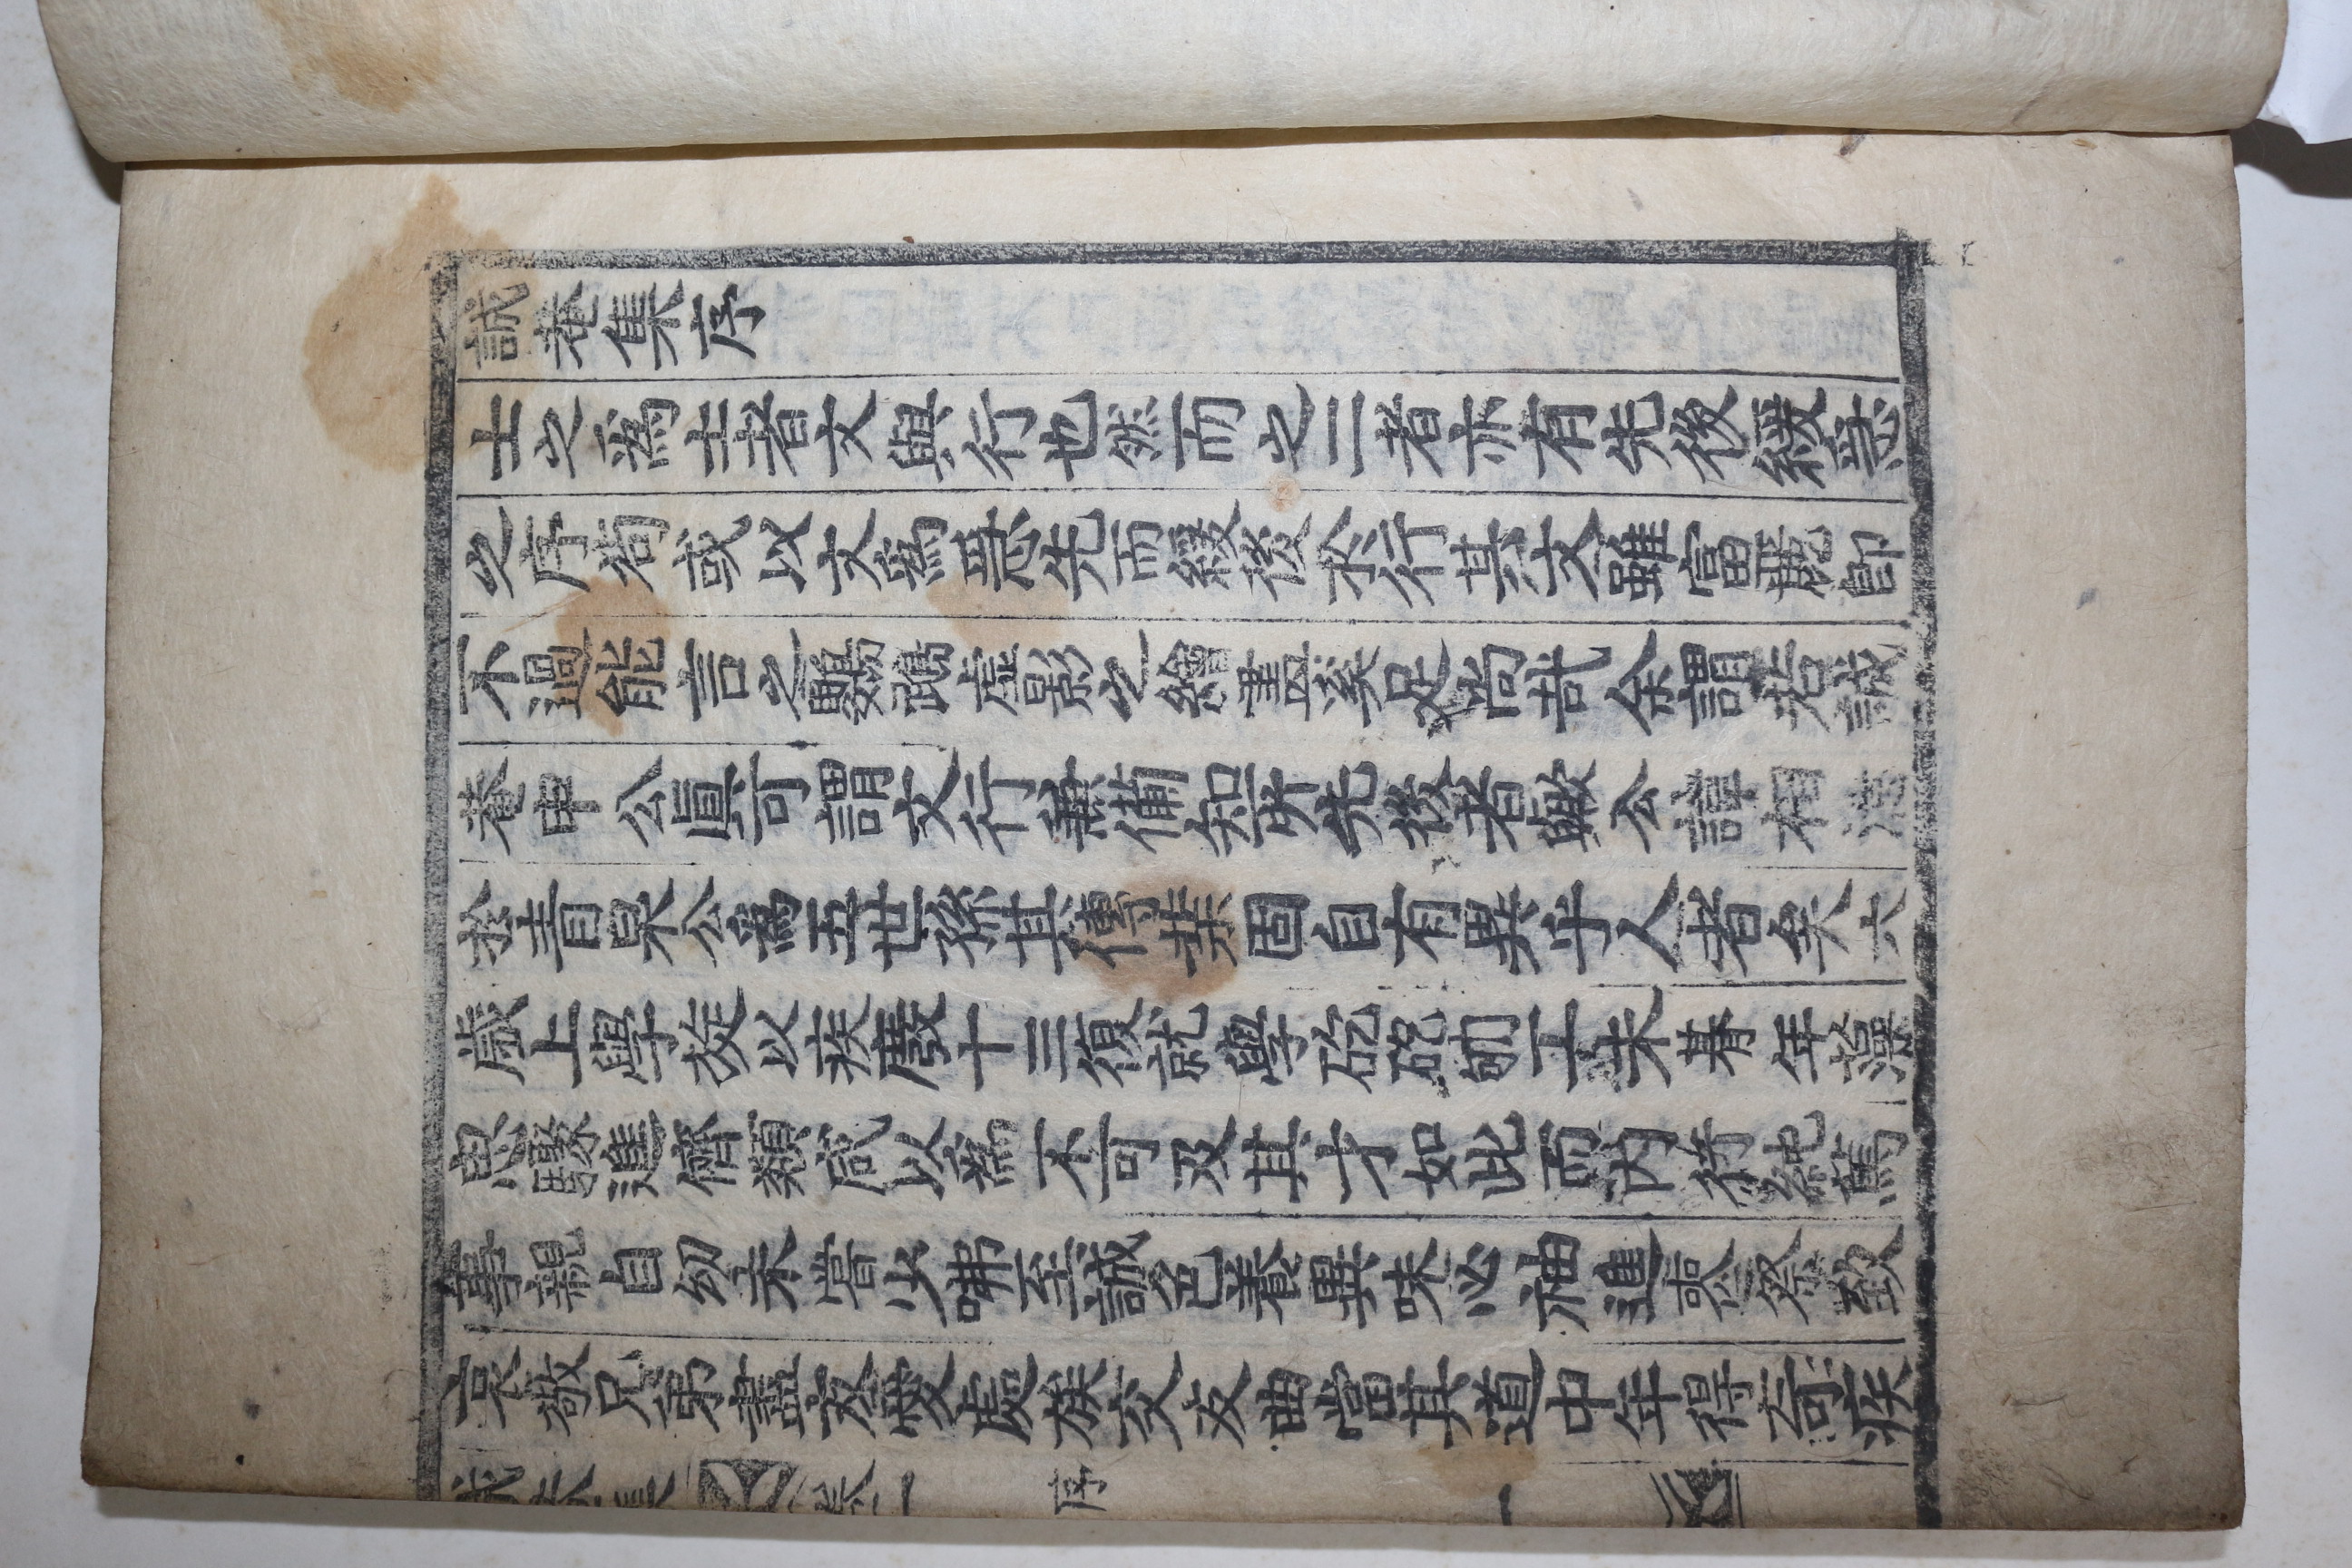 誠菴集序
士之爲士者文與行也然而之二者亦有先後緩急
之序茍或以文爲急先而緩後於行其文雖富麗卽
不過能言之鸚鵡虛影之繪畫奚足尚哉余謂若誠
菴申公眞可謂文行兼備知所先後者歟公諱相
於青泉公爲五世孫其傳業固自有異乎人者矣六
歲上學旋以疾廢十三復就學矻矻劬工未朞年藻
思驟進儕類咸以爲不可及其才如此而內行純篤
事親自幼未嘗少咈至誠色養異味必袖進喪祭致
哀敬兄弟盡友愛處族交友曲當其道中年得奇疾
誠菴集 卷一 序 一